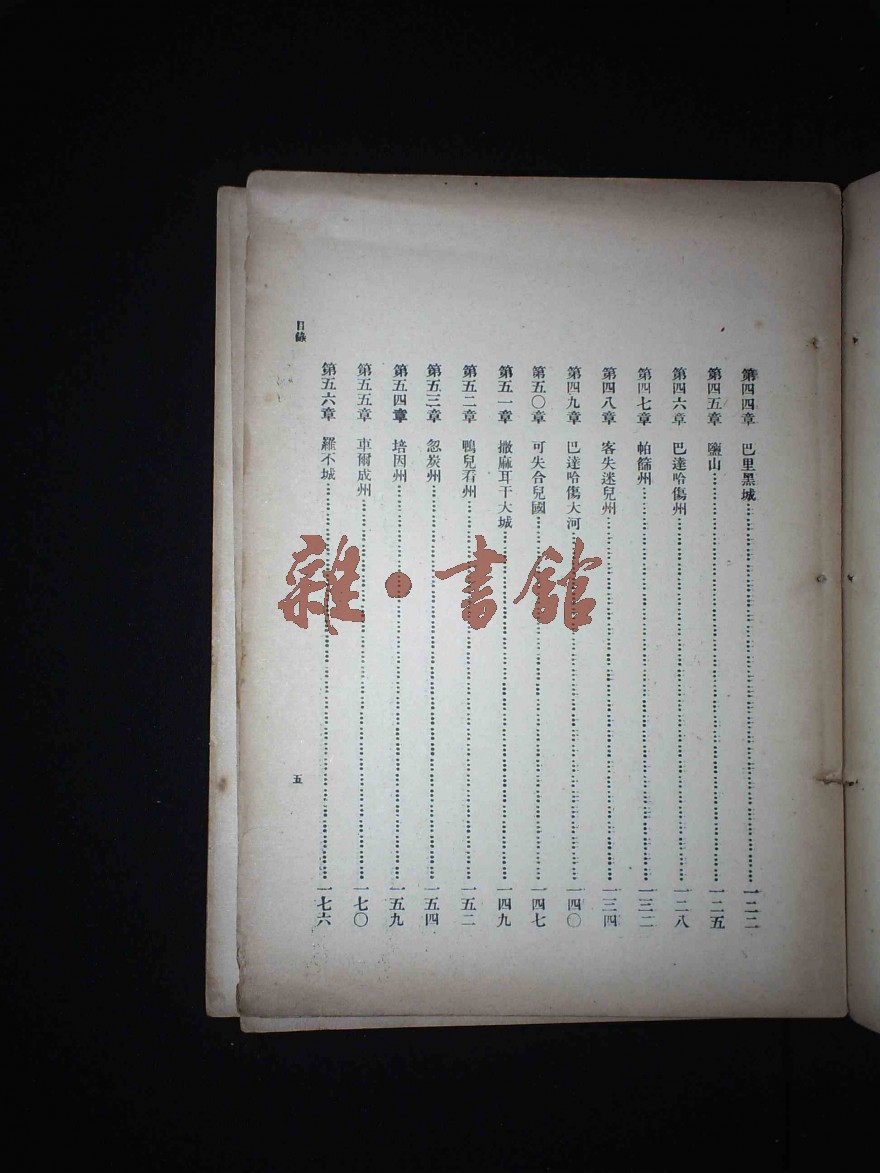 第四四章　巴里黑城……一二二
第四五章　鹽山……一二五
第四六章　巴達哈傷州……一二八
第四七章　帕篩州……一三二
第四八章　客失迷兒州……一三四
第四九章　巴達哈傷大河……一四〇
第五〇章　可失合兒國……一四七
第五一章　撒麻耳干大城……一四九
第五二章　鴨兒看州……一五二
第五三章　忽炭州……一五四
第五四章　培因州……一五九
第五五章　車爾成州……一七〇
第五六章　羅不城……一七六
目錄
五
雜·書館